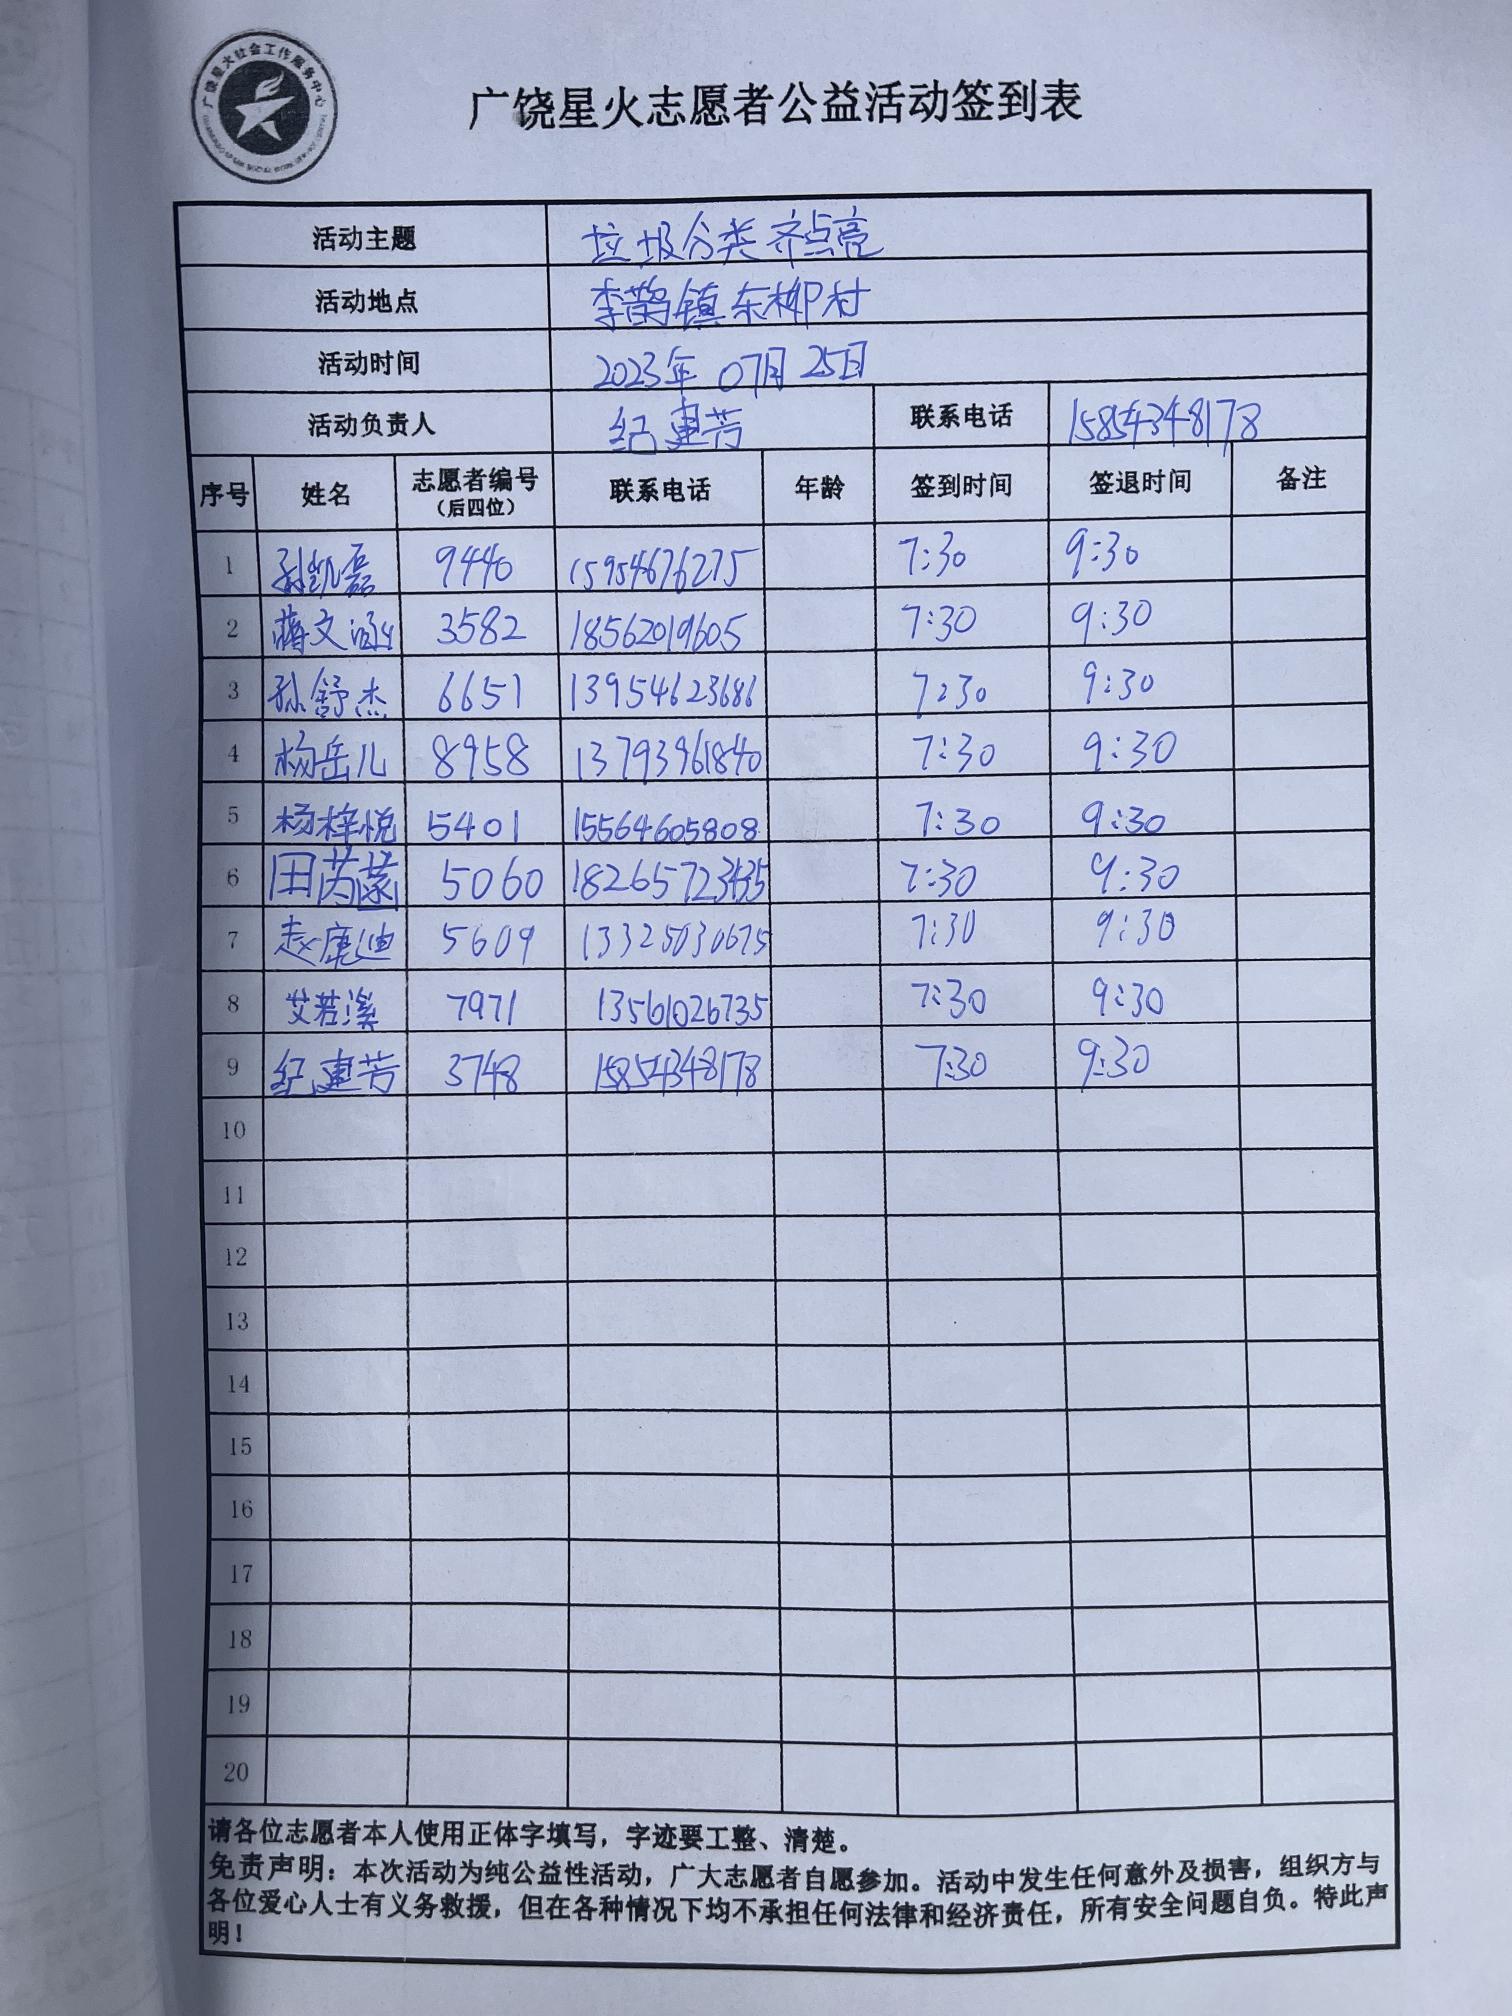 广饶星火社会工作服务中心
广饶星火志愿者公益活动签到表
活动主题 垃圾分类齐点亮
活动地点 李鹊镇东柳村
活动时间 2023年07月25日
活动负责人 纪建芳 联系电话 15854348178
序号 姓名 志愿者编号(后四位) 联系电话 年龄 签到时间 签退时间 备注
1 孙凯磊 9440 15954676275 7:30 9:30
2 蒋文涵 3582 18562019605 7:30 9:30
3 孙舒杰 6651 13954623686 7:30 9:30
4 杨岳儿 8958 13793961840 7:30 9:30
5 杨梓悦 5401 15564605808 7:30 9:30
6 田芮蒙 5060 7:30 9:30
7 赵康迪 5609 13325030675 7:30 9:30
8 艾若溪 7971 13561026735 7:30 9:30
9 纪建芳 3748 15854348178 7:30 9:30
10
11
12
13
14
15
16
17
18
19
20
请各位志愿者本人使用正体字填写，字迹要工整、清楚。
免责声明：本次活动为纯公益性活动，广大志愿者自愿参加。活动中发生任何意外及损害，组织方与
各位爱心人士有义务救援，但在各种情况下均不承担任何法律和经济责任，所有安全问题自负。特此声
明！